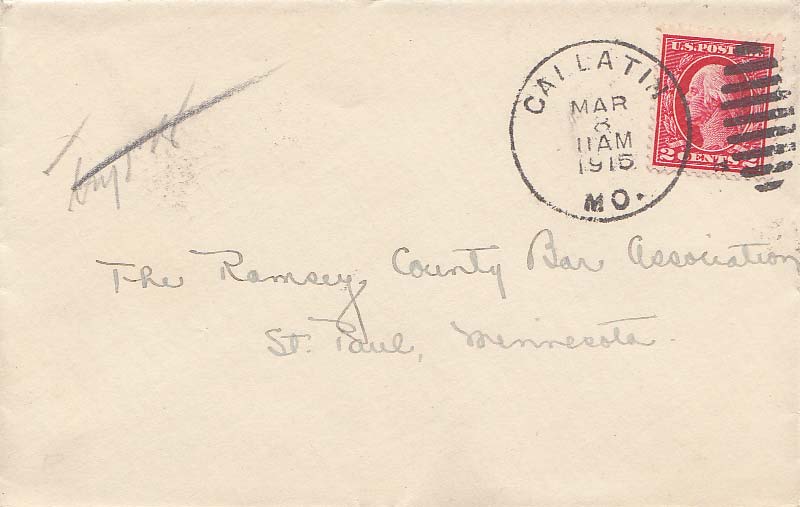 GALLATIN
MAR
8
11AM
1915
MO.
U.S. POSTAGE
2 CENTS 2
The Ramsey County Bar Association
St. Paul, Minnesota.